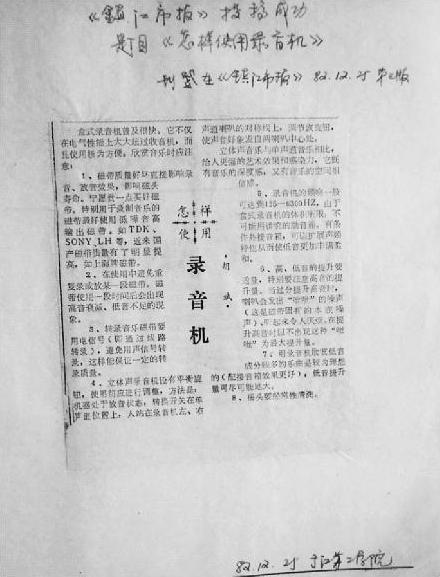 《镇江市报》投稿成功
题目《怎样使用录音机》
刊登在《镇江市报》82.12.25 第2版
盒式录音机普及很快，它不仅
在电气性能上大大超过收音机，而
且使用极为方便。欣赏音乐时应注
意：
1、磁带质量好坏直接影响录
音、放音效果，影响磁头
寿命。宁愿贵一点买好磁
带，特别用于录制音乐的
磁带最好使用低噪音高
输出磁带。如TDK、
SONY、LH等，近来国
产磁带质量有了明显提
高，如上海牌磁带。
2、在使用中避免重
复录或放某一段磁带。磁
带使用一段时间后会出现
高音衰减，低音不足的现
象。
3、转录音乐磁带要
用电信号（即通过线路
转录），避免用声信号转
录，这样能保证一定的转
录质量。
4、立体声录音机设有平衡旋
钮，使用前应进行调整，方法是：
机器处于放音状态，转换开关在单
声道位置上，人站在录音机左、右
怎样
使用
录
音
机
声道喇叭的对称线上，调节该旋钮，
使声音好象发自两喇叭中心处。
立体声音乐与单声道音乐相比，
给人更强的艺术效果和感染力，它既
有音乐的深度感，又有音乐的空间相
5、录音机的频响一般
可达到125—6300HZ，由于
盒式录音机的体积有限，不
件外接音箱，可以扩展声源
特性从而使低音更加丰满柔
和。
6、高、低音的提升要
适量，特别要注意高音的提
升量。当过分提升高音时，
喇叭会发出
（这是磁带固有的本底噪
声），听起来令人厌烦。在提
为最大提升量。
7、用录音机欣赏低音
成分较多的乐曲是较为理想
的（配接音箱效果更好），低音提升
量可尽可能地大。
8、磁头要经常性清洗。
82.12.25